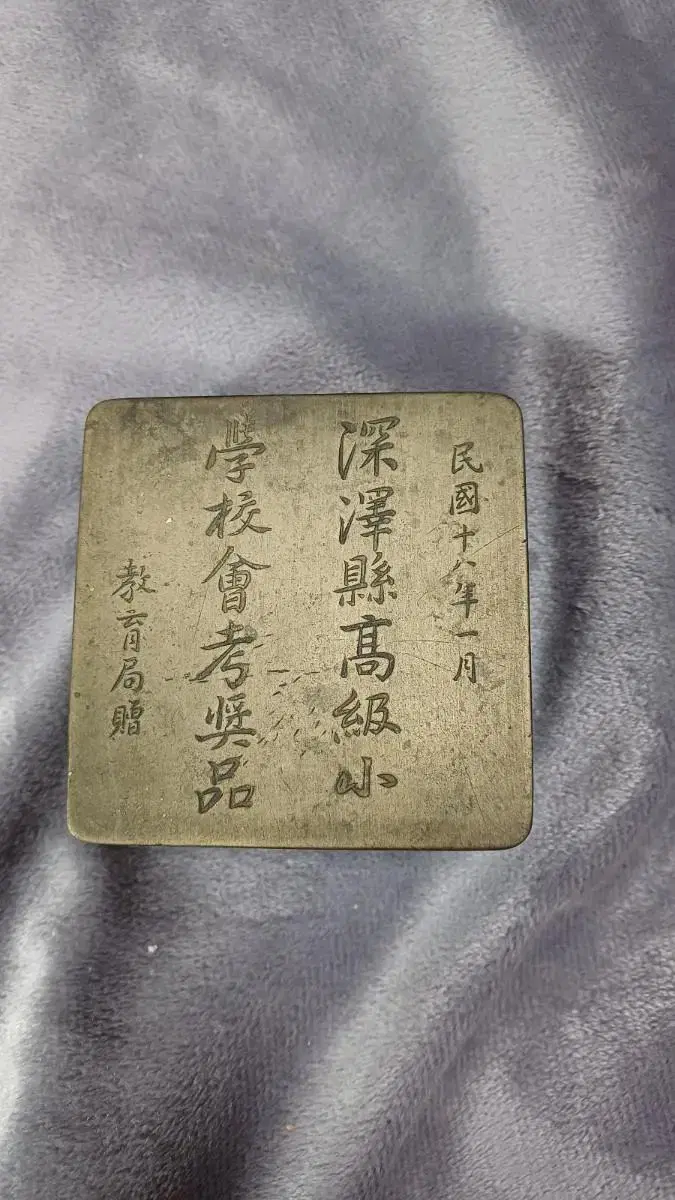 民國十八年一月
深澤縣高級小
學校會考獎品
教育局贈